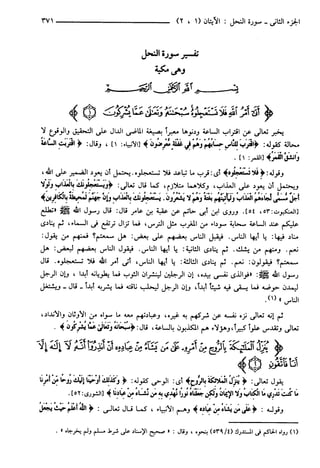 الجزء الثانى - سورة النحل : الآيتان (١ ، ٢) ٣٧١
تفسير سورة النحل
وهى مكية
بسم الله الرحمن الرحيم
﴿ أَتَىٰ أَمْرُ اللَّهِ فَلَا تَسْتَعْجِلُوهُ سُبْحَانَهُ وَتَعَالَىٰ عَمَّا يُشْرِكُونَ ۝١ ﴾
يخبر تعالى عن اقتراب الساعة ودنوها معبراً بصيغة الماضى الدال على التحقيق والوقوع لا
محالة كقوله: ﴿ اقْتَرَبَ لِلنَّاسِ حِسَابُهُمْ وَهُمْ فِي غَفْلَةٍ مُّعْرِضُونَ ﴾ [الأنبياء: ١] ، وقال: ﴿ اقْتَرَبَتِ السَّاعَةُ
وَانشَقَّ الْقَمَرُ ﴾ [القمر: ١] .
وقوله: ﴿ فَلَا تَسْتَعْجِلُوهُ ﴾ أى: قرب ما تباعد فلا تستعجلوه. يحتمل أن يعود الضمير على الله،
ويحتمل أن يعود على العذاب، وكلاهما متلازم، كما قال تعالى: ﴿ وَيَسْتَعْجِلُونَكَ بِالْعَذَابِ وَلَوْلَا
أَجَلٌ مُّسَمًّى لَّجَاءَهُمُ الْعَذَابُ وَلَيَأْتِيَنَّهُم بَغْتَةً وَهُمْ لَا يَشْعُرُونَ. يَسْتَعْجِلُونَكَ بِالْعَذَابِ وَإِنَّ جَهَنَّمَ لَمُحِيطَةٌ بِالْكَافِرِينَ ﴾
[العنكبوت: ٥٣، ٥٤]. وروى ابن أبى حاتم عن عقبة بن عامر قال: قال رسول الله ﷺ «تطلع
عليكم عند الساعة سحابة سوداء من المغرب مثل الترس، فما تزال ترتفع فى السماء، ثم ينادى
مناد فيها: يا أيها الناس. فيقبل الناس بعضهم على بعض: هل سمعتم؟ فمنهم من يقول:
نعم. ومنهم من يشك. ثم ينادى الثانية: يا أيها الناس. فيقول الناس بعضهم لبعض: هل
سمعتم؟ فيقولون: نعم. ثم ينادى الثالثة: يا أيها الناس، أتى أمر الله فلا تستعجلوه. قال
رسول الله ﷺ: «فوالذى نفسى بيده، إن الرجلين لينشران الثوب فما يطويانه أبداً ، وإن الرجل
ليمدن حوضه فما يسقى فيه شيئاً أبداً، وإن الرجل ليحلب ناقته فما يشربه أبداً ـ قال ـ ويشتغل
الناس » (١).
ثم إنه تعالى نزه نفسه عن شركهم به غيره، وعبادتهم معه ما سواه من الأوثان والأنداد،
تعالى وتقدس علواً كبيراً، وهؤلاء هم المكذبون بالساعة، قال: ﴿سُبْحَانَهُ وَتَعَالَىٰ عَمَّا يُشْرِكُونَ﴾ .
﴿ يُنَزِّلُ الْمَلَائِكَةَ بِالرُّوحِ مِنْ أَمْرِهِ عَلَىٰ مَن يَشَاءُ مِنْ عِبَادِهِ أَنْ أَنذِرُوا أَنَّهُ لَا إِلَٰهَ إِلَّا
أَنَا فَاتَّقُونِ ۝٢ ﴾
يقول تعالى: ﴿ يُنَزِّلُ الْمَلَائِكَةَ بِالرُّوحِ ﴾ أى: الوحى كقوله: ﴿ وَكَذَٰلِكَ أَوْحَيْنَا إِلَيْكَ رُوحًا مِّنْ أَمْرِنَا
مَا كُنتَ تَدْرِي مَا الْكِتَابُ وَلَا الْإِيمَانُ وَلَٰكِن جَعَلْنَاهُ نُورًا نَّهْدِي بِهِ مَن نَّشَاءُ مِنْ عِبَادِنَا ﴾ [الشورى: ٥٢].
وقوله : ﴿ عَلَىٰ مَن يَشَاءُ مِنْ عِبَادِهِ ﴾ وهم الأنبياء ، كما قال تعالى : ﴿ اللَّهُ أَعْلَمُ حَيْثُ يَجْعَلُ
(١) رواه الحاكم فى المستدرك (٥٣٩/٤) بنحوه ، وقال : « صحيح الإسناد على شرط مسلم ولم يخرجاه » .